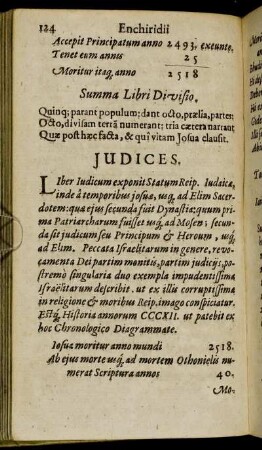 124 Enchiridii
Accepit Principatum anno 2493, exeunte,
Tenet eum annis 25
Moritur itaq; anno 2518
Summa Libri Divisio.
Quinq; parant populum: dant octo, prælia, partes:
Octo, divisam terrã numerant: tria cætera narrant
Quæ post hæc facta, & quì vitam Josua clausit.
JUDICES.
LIber Iudicum exponit Statum Reip. Iudaicæ,
inde à temporibus josuæ, usq; ad Elim Sacer-
dotem: quæ ejus secunda fuit Dynastia: quum pri-
ma Patriarcharum fuisset usq; ad Mosen; secun-
da sit judicum seu Principum & Heroum, usq;
ad Elim. Peccata Israëlitarum in genere, revo-
camenta Dei partim monitis, partim judicijs, po-
stremò singularia duo exempla impudentissima
Israëlitarum describit. ut ex illis corruptissima
in religione & moribus Reip. imago conspiciatur.
Estq; Historia annorum CCCXII. ut patebit ex
hoc Chronologico Diagrammate.
Iosua moritur anno mundi 2518.
Ab ejus morte usq; ad mortem Othonielis nu-
merat Scriptura annos 40.
Mo-